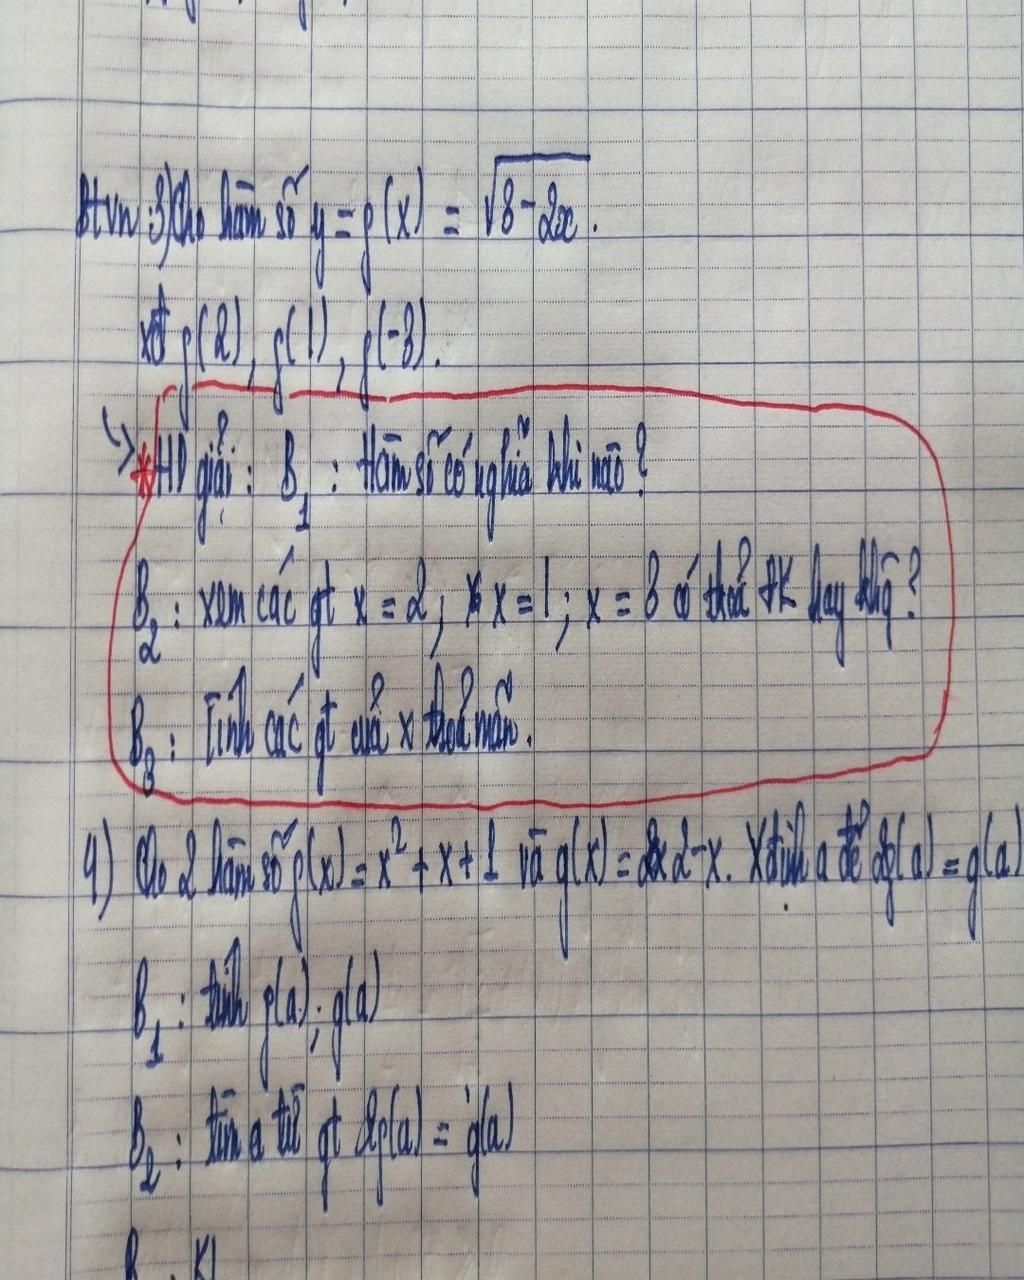 Btvn: 3) Cho hàm số y = f(x) = √3-2x.
xđ f(2), f(1), f(-3).
* HD giải: B1: Hàm số có nghĩa khi nào?
B2: xem các gt x = 2; x = 1; x = 3 có thoả đk hay khg?
B3: Tính các gt của x thoả mãn.
4) Cho 2 hàm số f(x) = x² + x + 1 và g(x) = 2-x. Xđịnh a để 2f(a) = g(a)
B1: tính f(a); g(a)
B2: tìm a từ gt 2f(a) = g(a)
: Kl